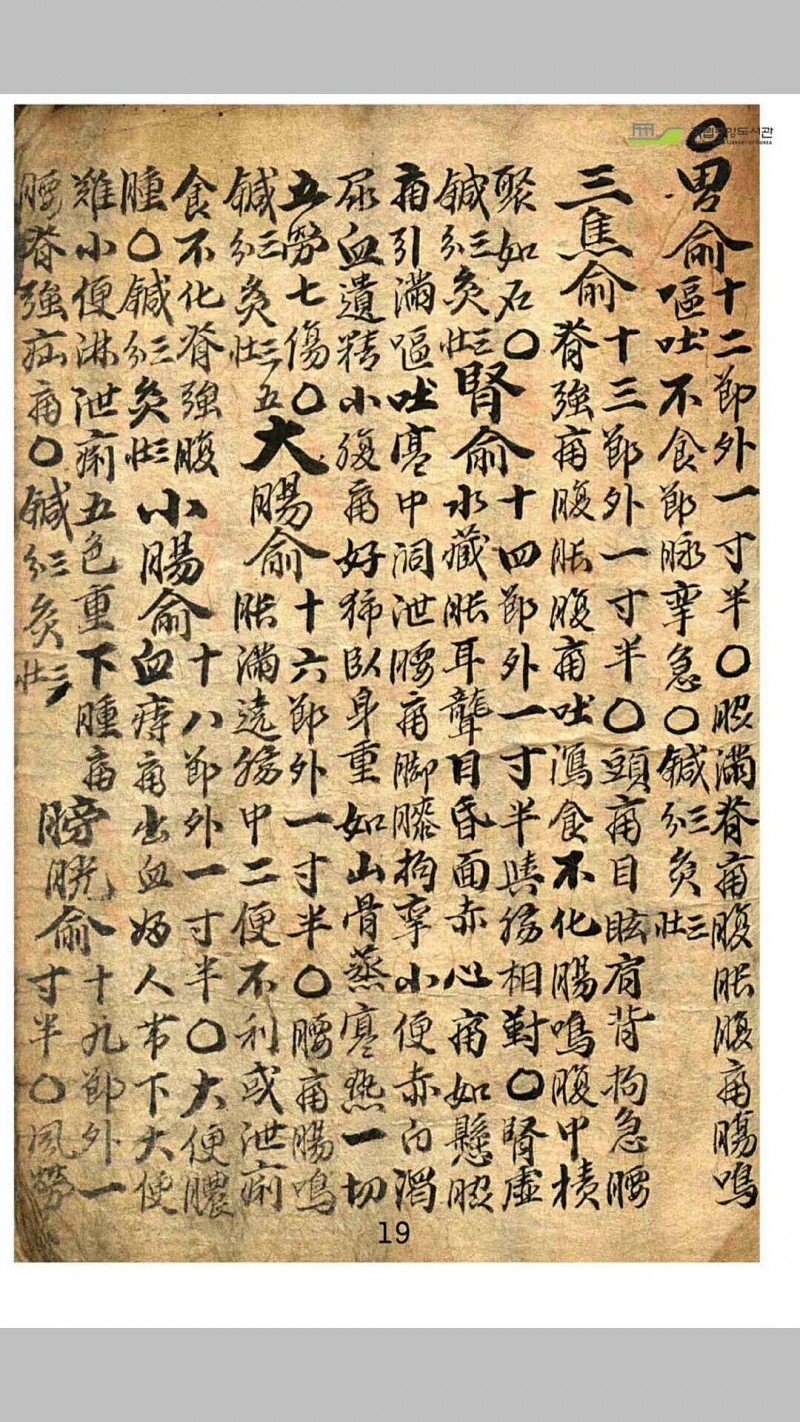 국립중앙도서관
LIBRARY OF KOREA
○胃俞十二節外一寸半○脹滿脊痛腹脹腹痛腸鳴
嘔吐不食節脉攣急○鍼三分灸三壯
三焦俞十三節外一寸半○頭痛目眩肩背拘急腰
脊強痛腹脹腹痛吐瀉食不化腸鳴腹中積
聚如石○鍼三分灸三壯
腎俞十四節外一寸半與臍相對○腎虛
水藏脹耳聾目昏面赤心痛如懸脹
痛引滿嘔吐寒中洞泄腰痛脚膝拘攣小便赤白濁
尿血遺精小腹痛好獨臥身重如山骨蒸寒熱一切
五勞七傷○鍼三分灸三壯五
大腸俞十六節外一寸半○腰痛腸鳴
脹滿遶臍中二便不利或泄痢
食不化脊強腹
腫○鍼三分灸三壯
小腸俞十八節外一寸半○大便膿
血痔痛出血婦人帶下大便
難小便淋泄痢五色重下腫痛
膀胱俞十九節外一
寸半○風勞
腰脊強疝痛○鍼三分灸三壯
19